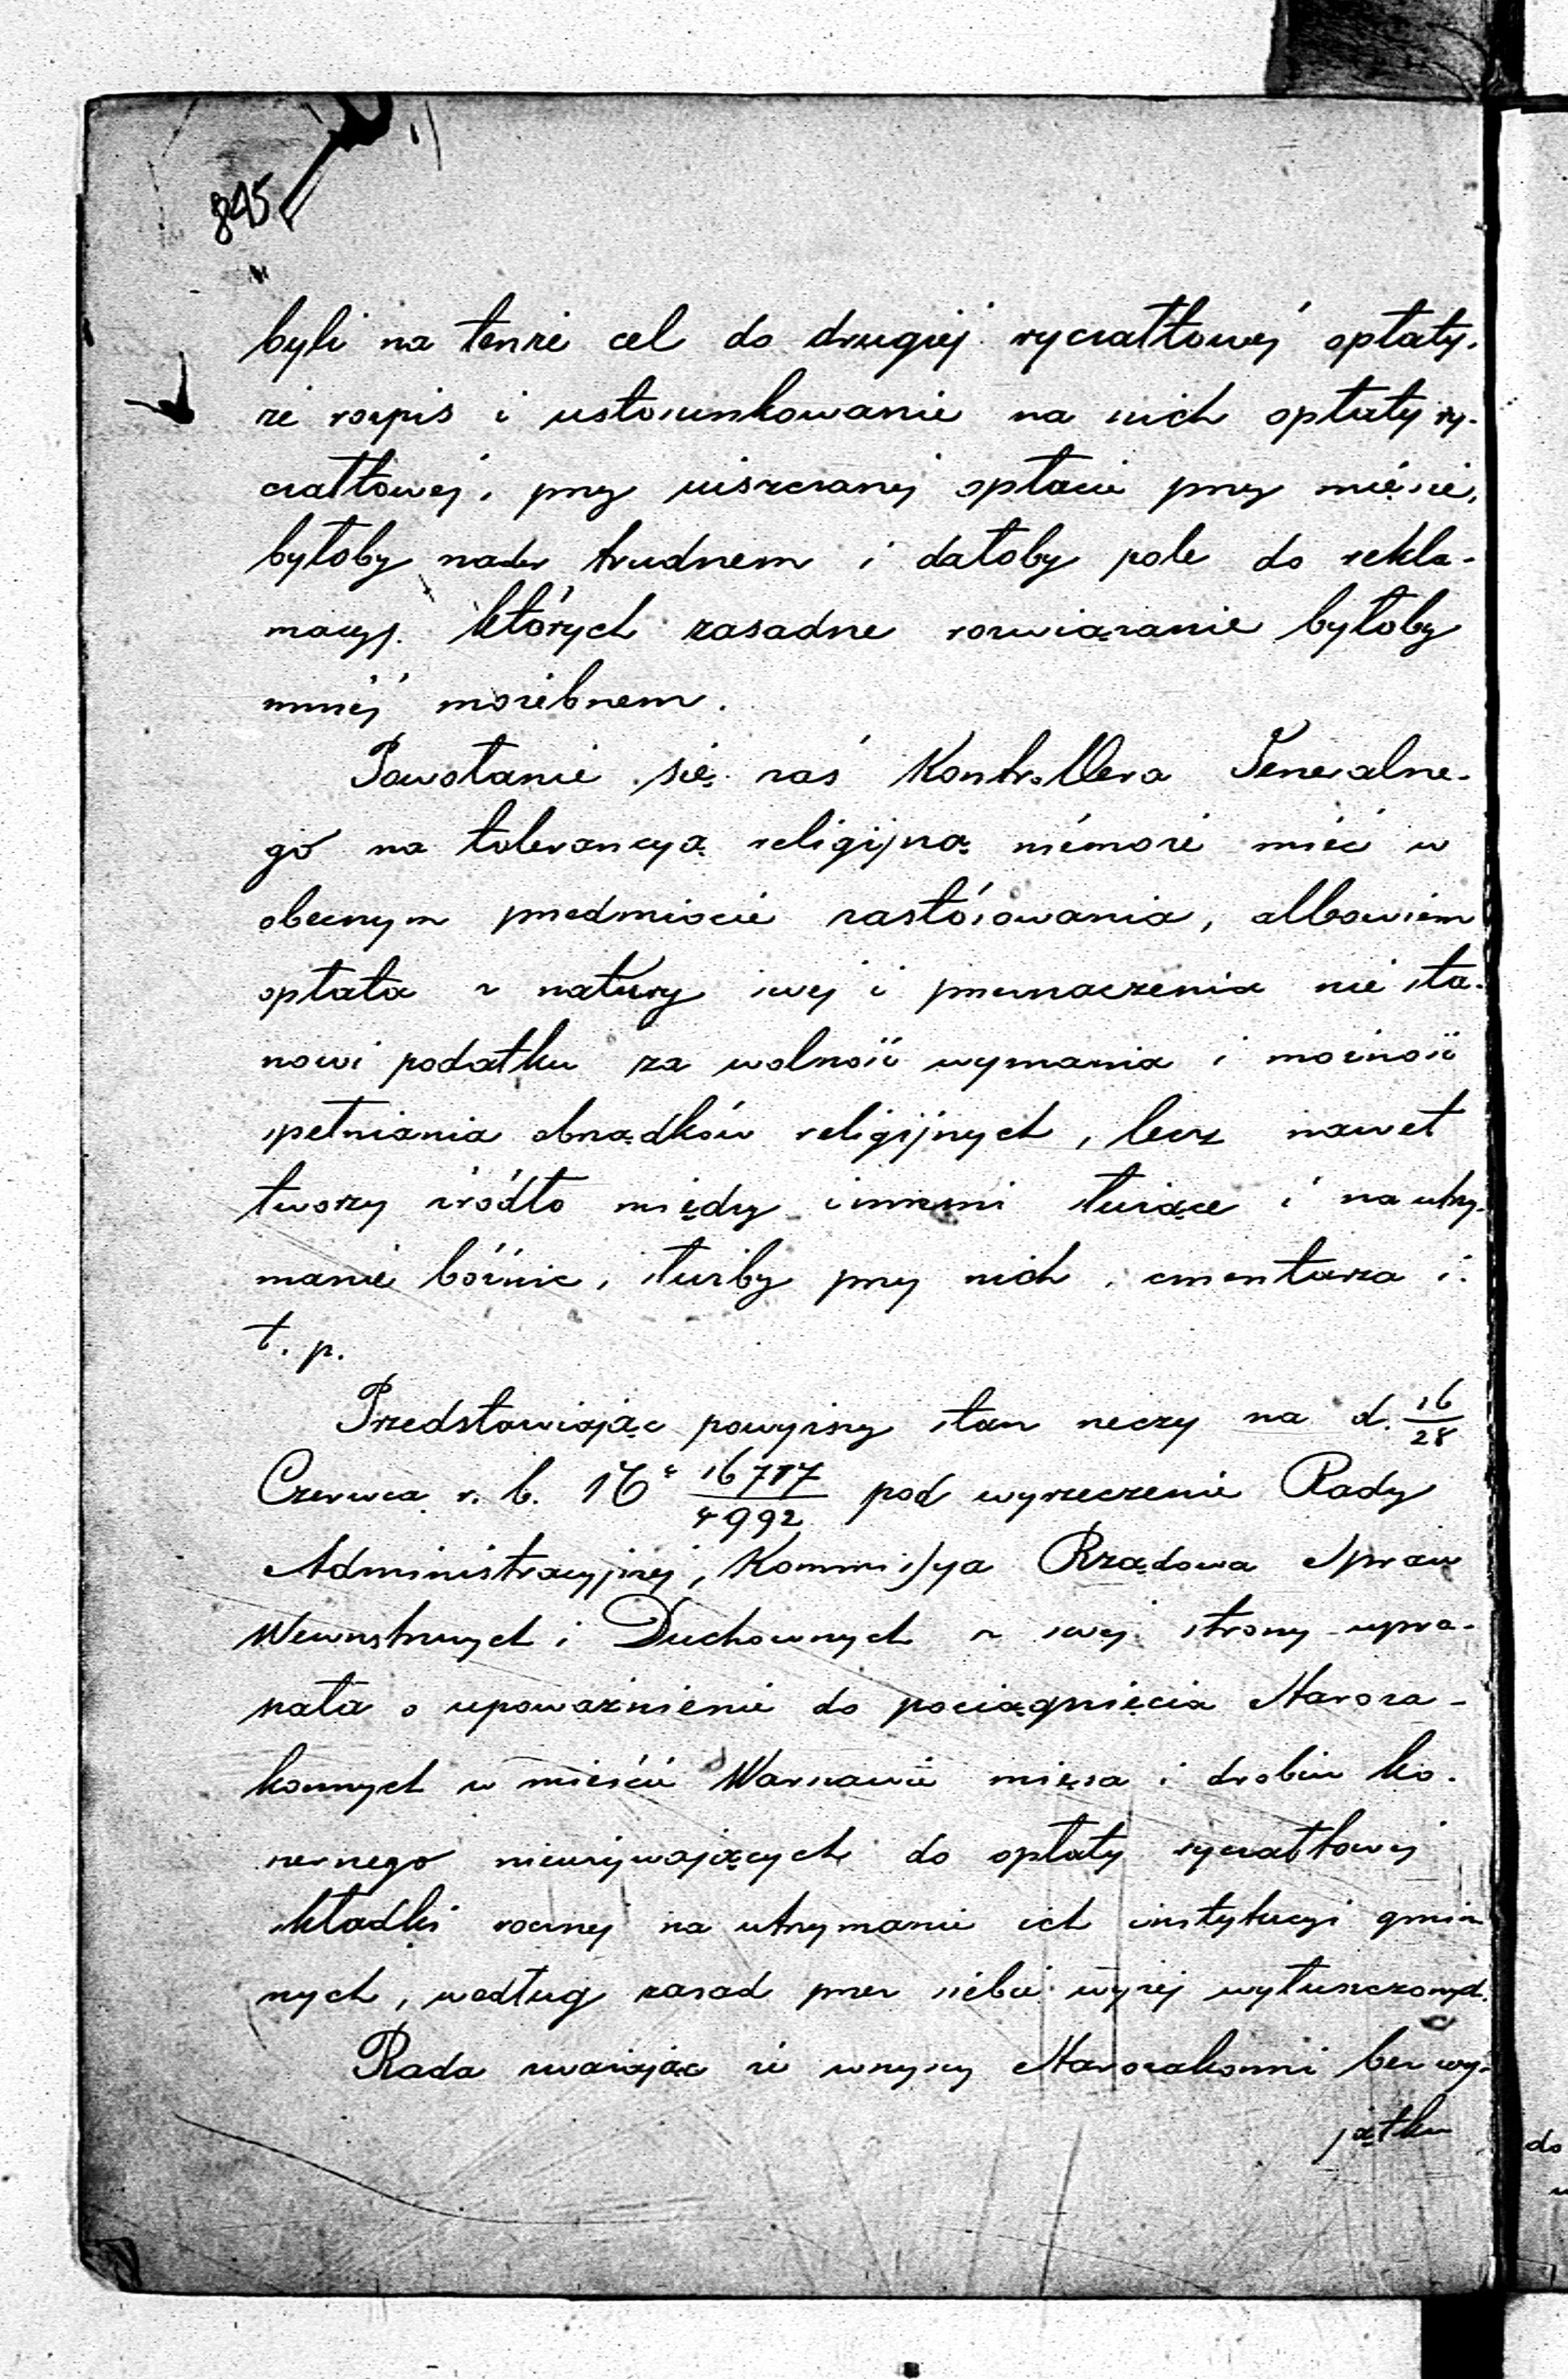 845
byli na tenże cel do drugiej ryczałtowej opłaty,
że rozpis i ustosunkowanie na nich opłaty ry-
czałtowej, przy uiszczanej opłacie przy mięsie,
byłoby nader trudnem i dałoby pole do rekla-
macyj, których zasadne rozwiązanie byłoby
mniej możebnem.
Powołanie się zaś Kontrollera Generalne-
go na tolerancyą religijną niemoże mieć w
obecnym przedmiocie zastósowania, albowiem
opłata z natury swej i przeznaczenia nie sta-
nowi podatku za wolność wyznania i możność
spełniania obrządków religijnych, lecz nawet
tworzy źródło między innemi służące i na utrzy-
manie bóźnic, służby przy nich, cmentarza i
t. p.
Przedstawiając powyższy stan rzeczy na d. 16/28
Czerwca r. b. No 16717/4992 pod wyrzeczenie Rady
Administracyjnej, Kommissya Rządowa Spraw
Wewnętrznych i Duchownych z swej strony upra-
szała o upoważnienie do pociągnięcia Staroza-
konnych w mieście Warszawie mięsa i drobiu ko-
szernego nieużywających do opłaty ryczałtowej
składki rocznej na utrzymanie ich instytucyi gmin
nych, według zasad przez siebie wyżej wyłuszczonych.
Rada uważając że wszyscy Starozakonni bez wy-
jątku
do